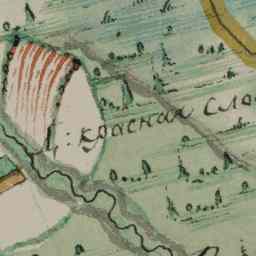 Красная Сло